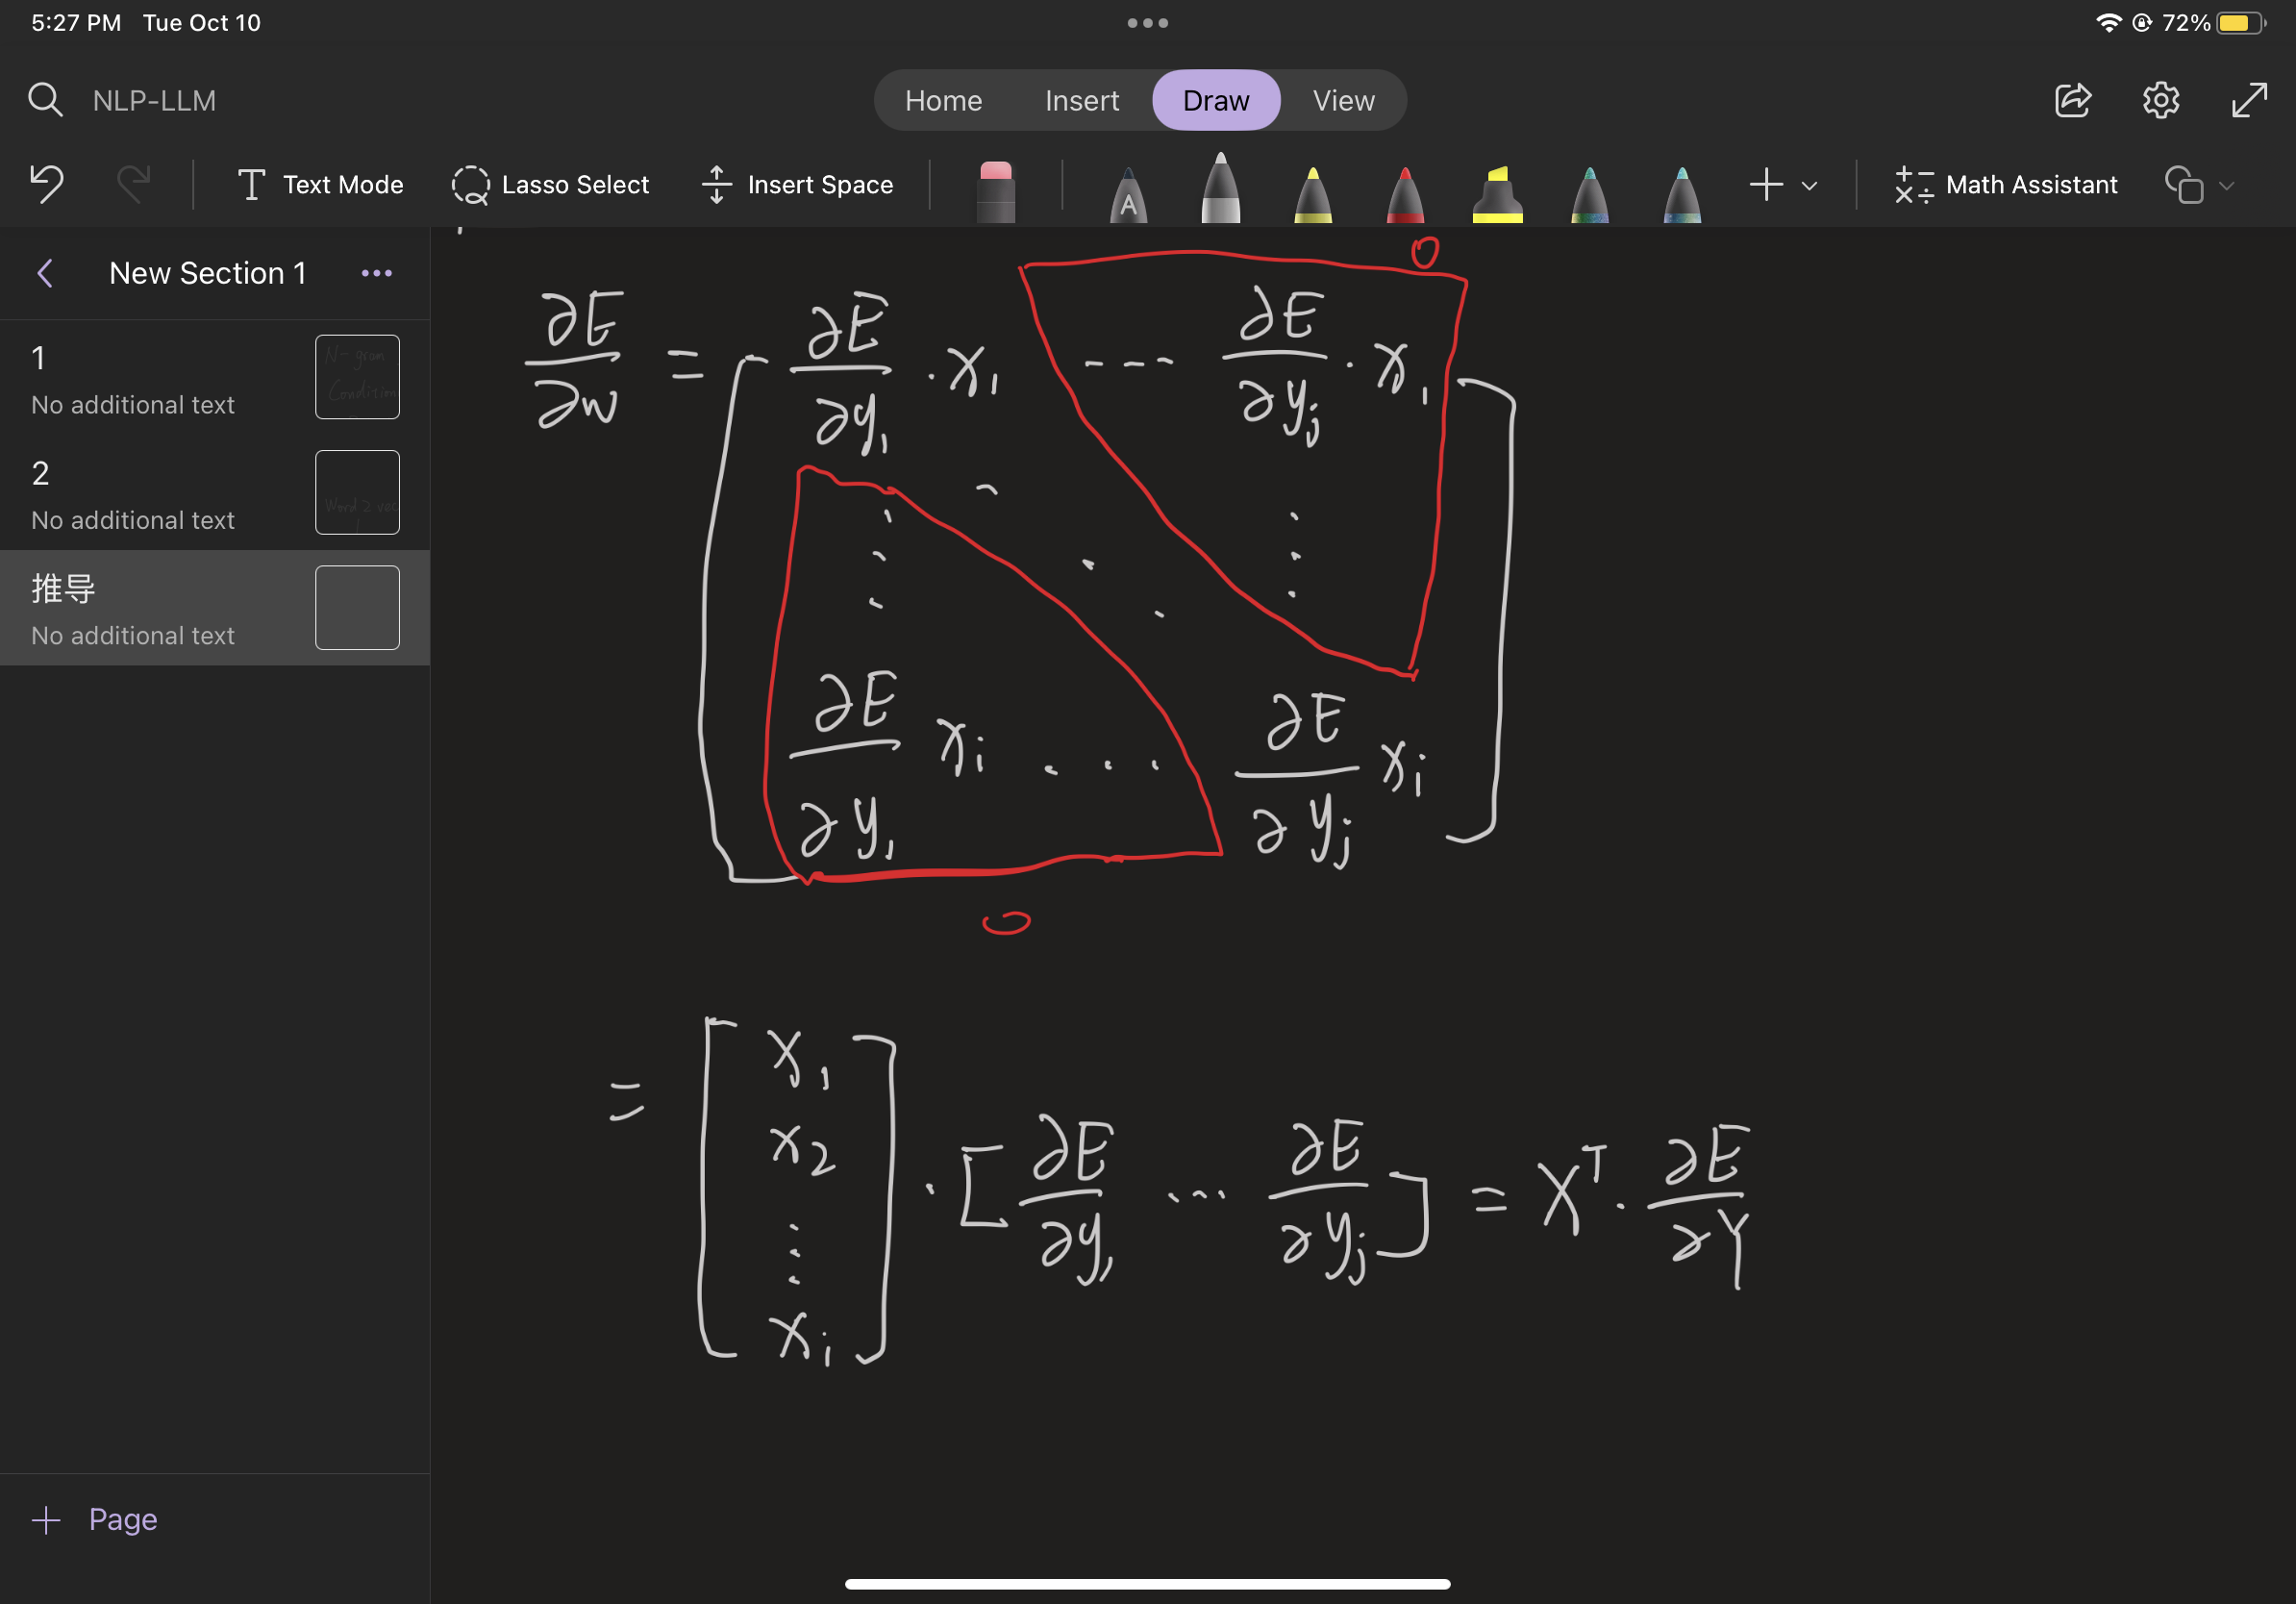 5:27 PM Tue Oct 10
72%
NLP-LLM
Home Insert Draw View
Text Mode Lasso Select Insert Space A Math Assistant
New Section 1
1
No additional text
N-gram
Condition
2
No additional text
Word 2 vec
推导
No additional text
Page
∂E/∂w = [ ∂E/∂y₁ · x₁ ---- ∂E/∂yⱼ · x₁
0
⋮ ⋱ ⋮
∂E/∂y₁ xᵢ ... ∂E/∂yⱼ xᵢ ]
0
= [ x₁ x₂ ⋮ xᵢ ] · [ ∂E/∂y₁ ... ∂E/∂yⱼ ] = Xᵀ · ∂E/∂Y